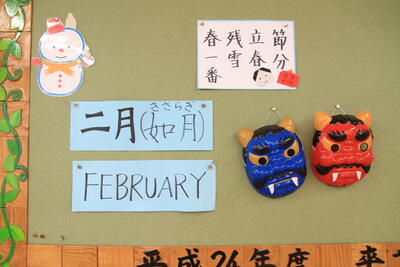 節分
立春
残雪
春一番
きさらぎ
二月(如月)
FEBRUARY
平成26年度